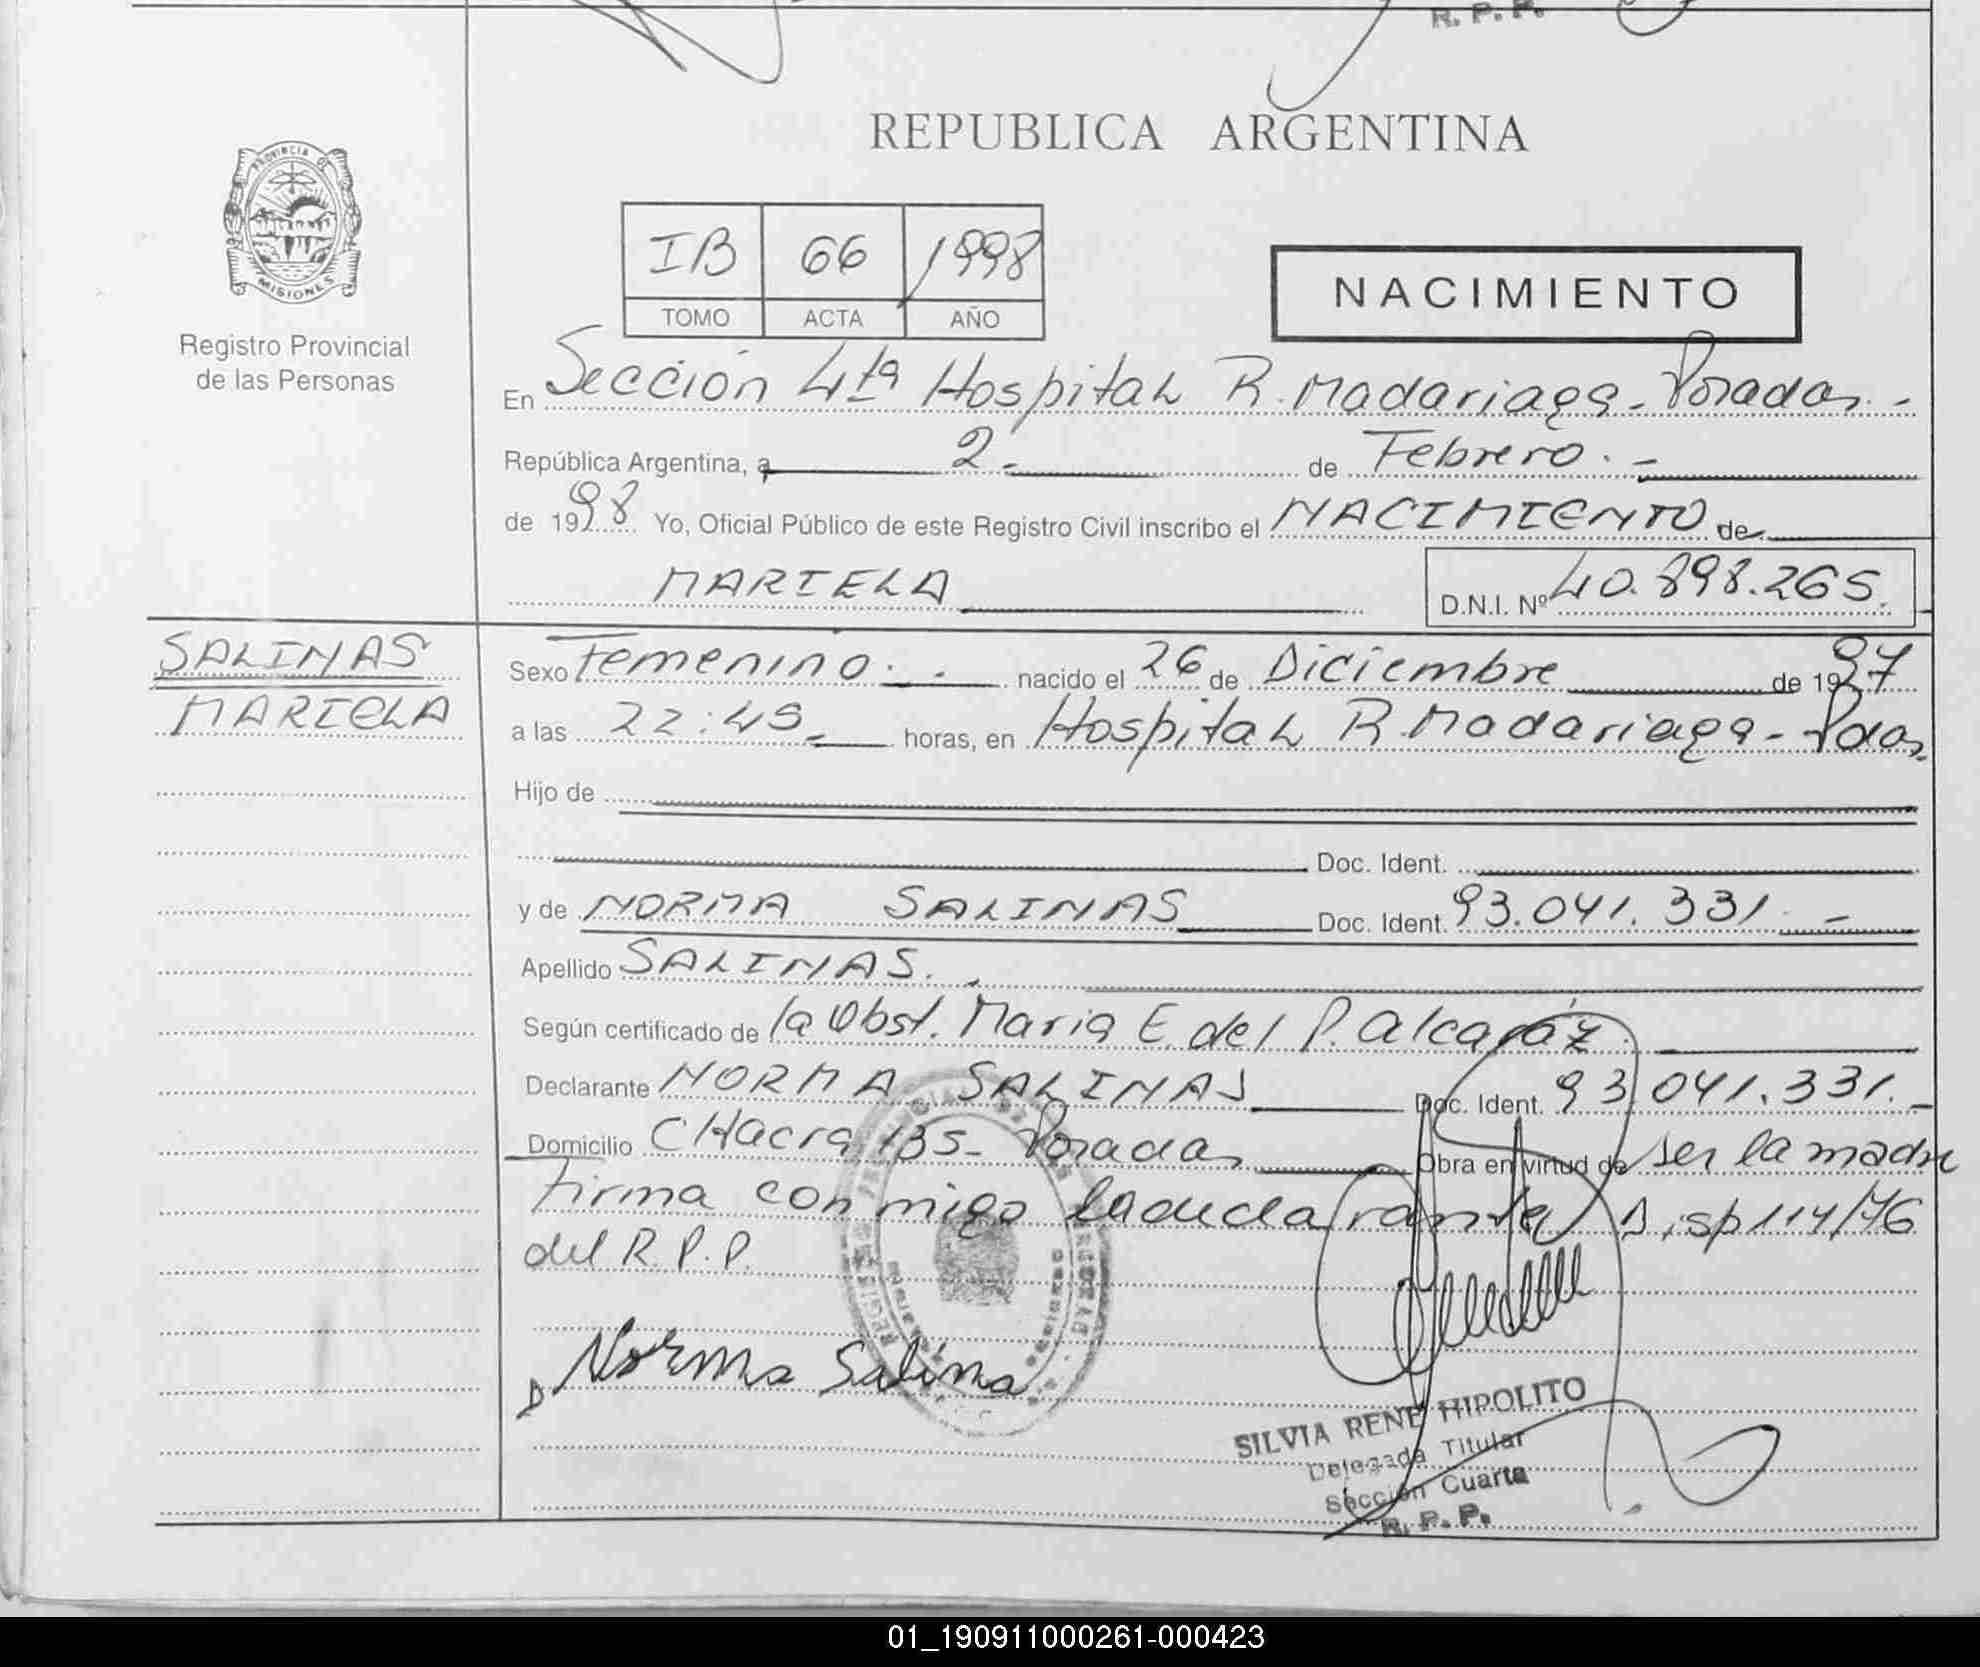 R. P. P.
REPUBLICA ARGENTINA
PROVINCIA DE
MISIONES
Registro Provincial
de las Personas
IB 66 1998
TOMO ACTA AÑO
NACIMIENTO
En Sección 4ta Hospital R. Madariaga - Posadas. -
República Argentina, a 2.- de Febrero. -
de 1998 Yo, Oficial Público de este Registro Civil inscribo el NACIMIENTO de
MARIELA D.N.I. Nº 40.898.265.
SALINAS
MARIELA
Sexo Femenino. - nacido el 26 de Diciembre de 1997
a las 22:45 horas, en Hospital R. Madariaga - Pdas.
Hijo de
Doc. Ident.
y de NORMA SALINAS Doc. Ident. 93.041.331. -
Apellido SALINAS.
Según certificado de la Obst. Maria E. del P. Alcaráz
Declarante NORMA SALINAS Doc. Ident. 93.041.331. -
Domicilio CHacra 135- Posadas Obra en virtud de ser la madre
firma conmigo la declarante Disp 114/76
del R.P.P.
Norma Salina
SILVIA RENE HIPOLITO
Delegada Titular
Sección Cuarta
R. P. P.
01_190911000261-000423